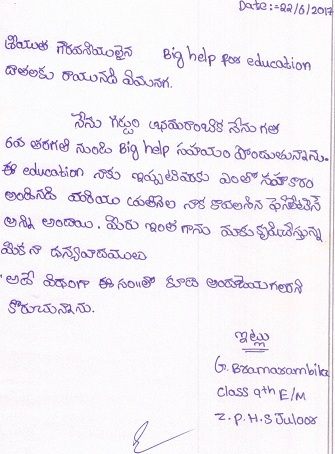 Date:-22/6/2017
శ్రీయుత గౌరవనీయులైన Big help for education
దాతలకు రాయునది ఏమనగ.
నేను గడ్డం భ్రమరాంబిక నేను గత
6వ తరగతి నుండి Big help సహాయం పొందుతున్నాను.
ఈ education నాకు ఇప్పటివరకు ఎంతో సహకారం
అందినది మరియు నాకు కావలసిన
అన్ని అందాయి. మీరు ఇంత గాను మాకు కృషిచేస్తున్న
మీకు నా ధన్యవాదములు
అదే విధంగా ఈ సం॥లో కూడా అందజేయగలరని
కోరుచున్నాను.
ఇట్లు
G. Bramarambika
Class 9th E/M
Z.P.H.S Juloor